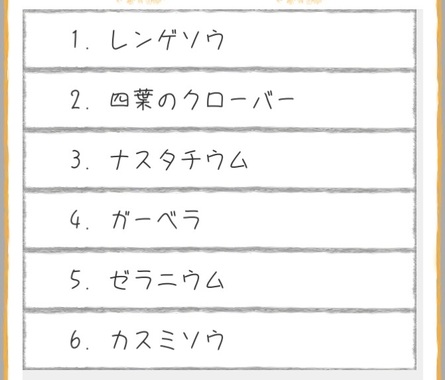 1. レンゲソウ
2. 四葉のクローバー
3. ナスタチウム
4. ガーベラ
5. ゼラニウム
6. カスミソウ